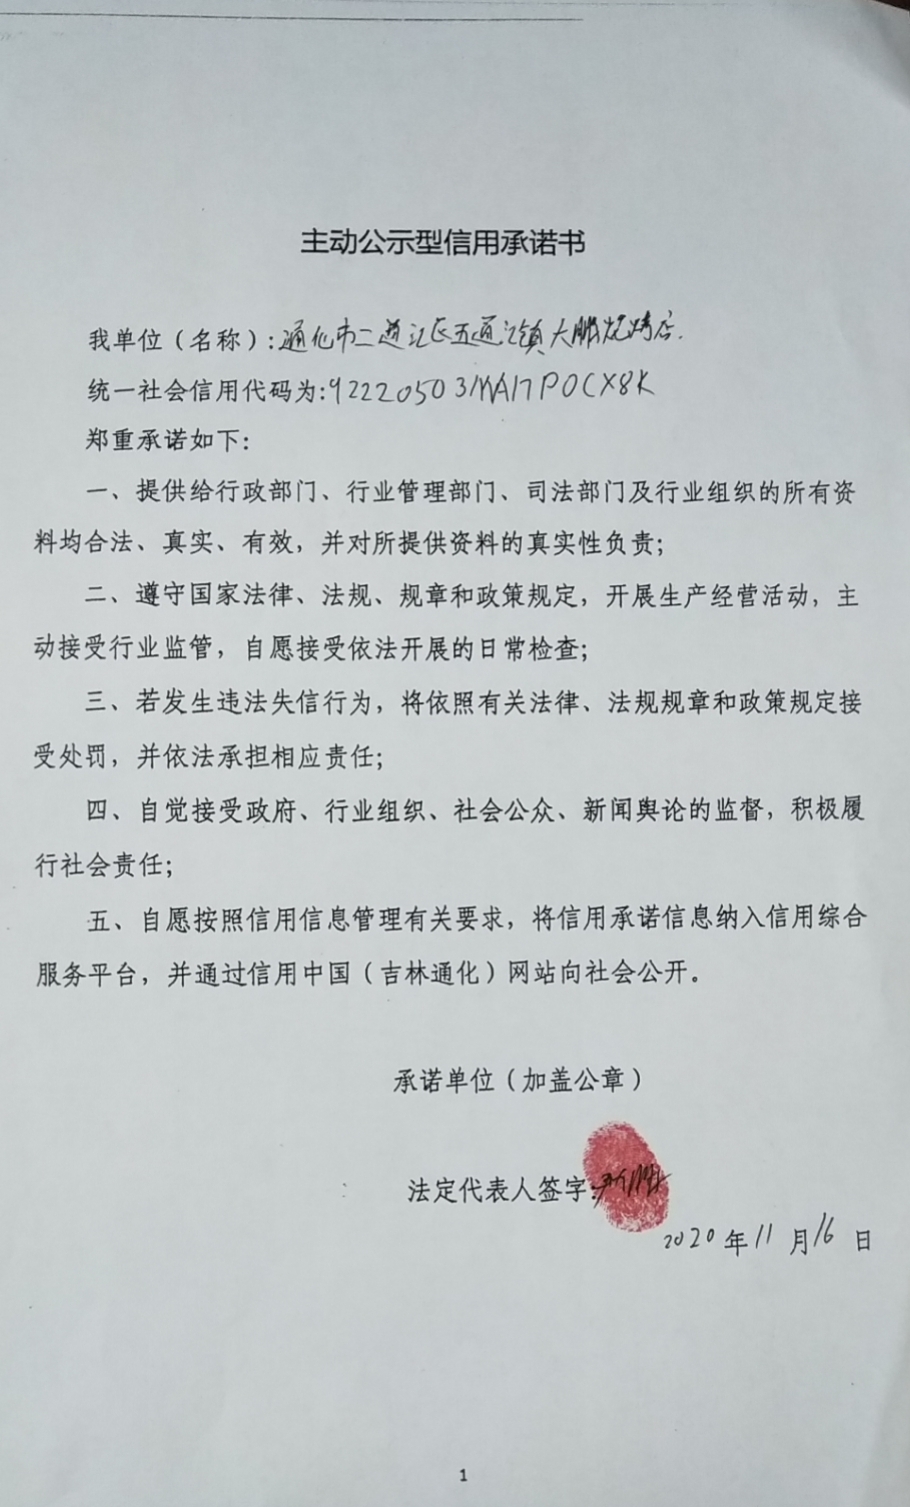 主动公示型信用承诺书
我单位（名称）:通化市二道江区五道江镇大鹏烧烤店.
统一社会信用代码为:92220503MA17P0CX8K
郑重承诺如下:
一、提供给行政部门、行业管理部门、司法部门及行业组织的所有资
料均合法、真实、有效，并对所提供资料的真实性负责；
二、遵守国家法律、法规、规章和政策规定，开展生产经营活动，主
动接受行业监管，自愿接受依法开展的日常检查；
三、若发生违法失信行为，将依照有关法律、法规规章和政策规定接
受处罚，并依法承担相应责任；
四、自觉接受政府、行业组织、社会公众、新闻舆论的监督，积极履
行社会责任；
五、自愿按照信用信息管理有关要求，将信用承诺信息纳入信用综合
服务平台，并通过信用中国（吉林通化）网站向社会公开。
承诺单位（加盖公章）
法定代表人签字:
2020年11月16日
1